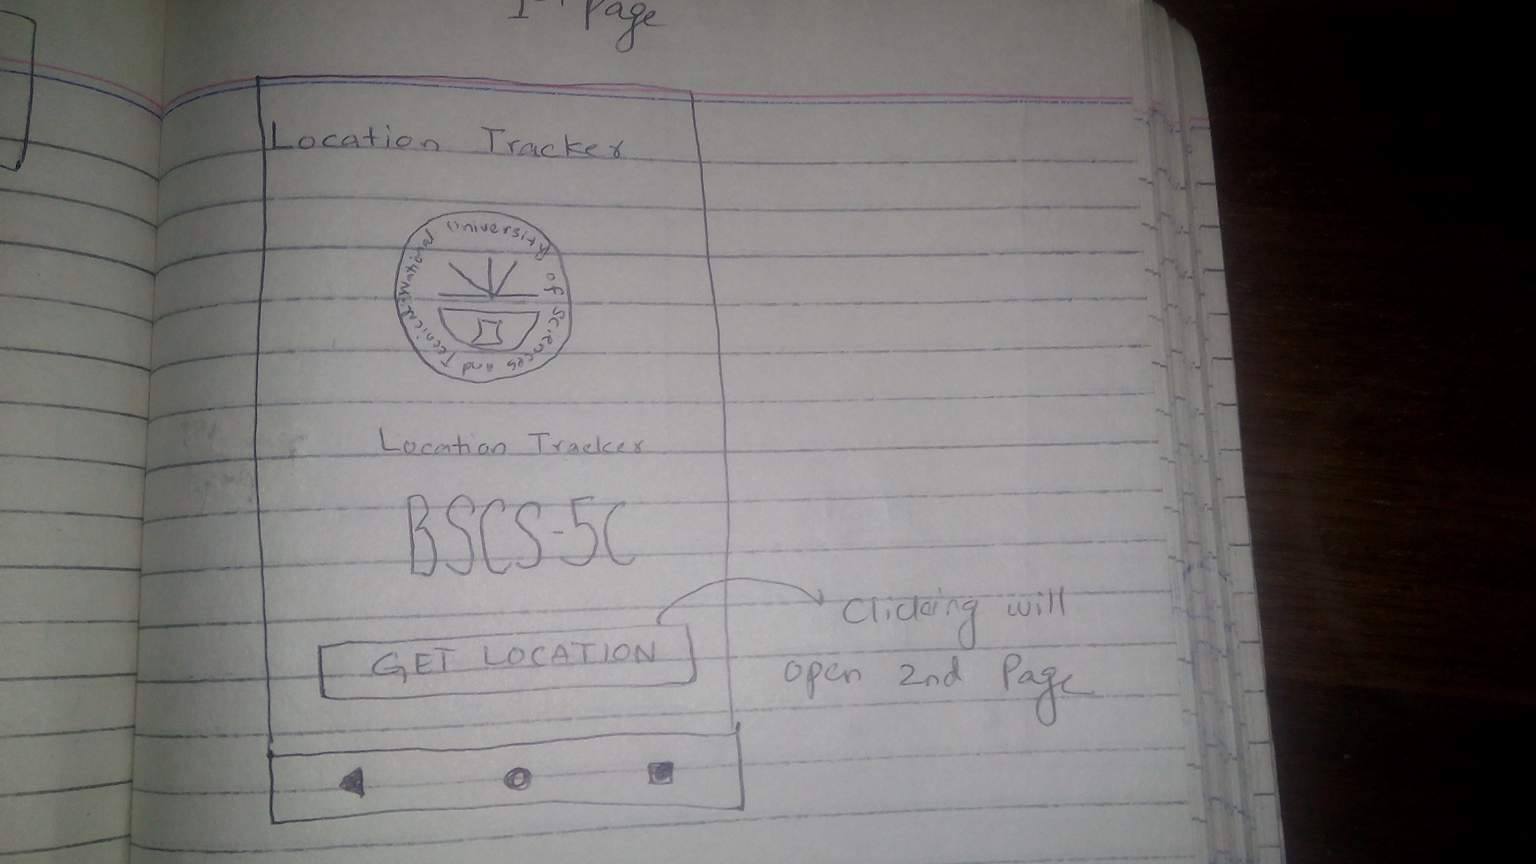 1st Page
Location Tracker
National University of Sciences and Tecnical
Location Tracker
BSCS-5C
GET LOCATION
Clicking will
open 2nd Page